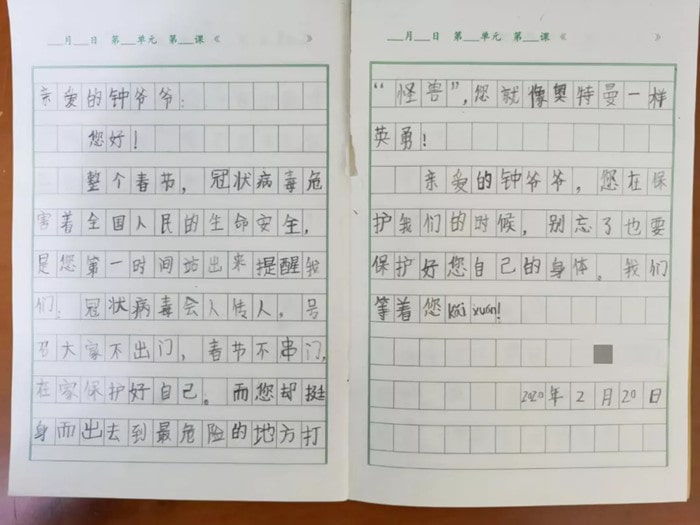 ___月___日 第___单元 第___课《 》
亲爱的钟爷爷:
您好!
整个春节,冠状病毒危
害着全国人民的生命安全,
是您第一时间站出来提醒我
们:冠状病毒会人传人。号
召大家不出门,春节不串门,
在家保护好自己。而您却挺
身而出去到最危险的地方打
___月___日 第___单元 第___课《 》
“怪兽”,您就像奥特曼一样
英勇!
亲爱的钟爷爷,您在保
护我们的时候,别忘了也要
保护好您自己的身体。我们
等着您kǎi xuán!
2020年2月20日